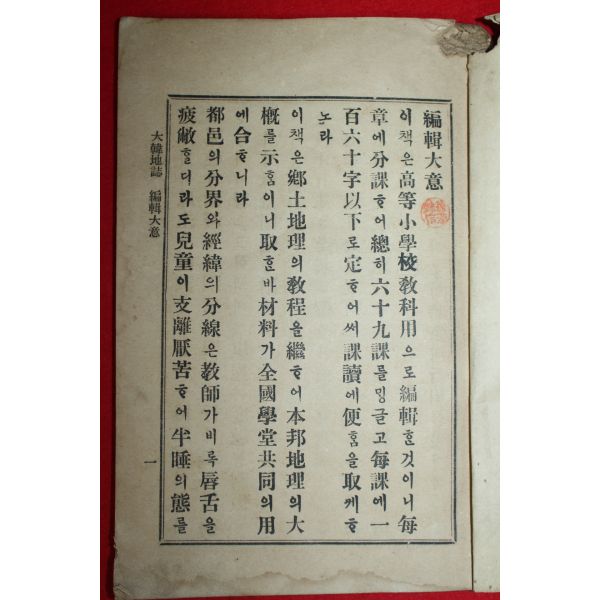 編輯大意
이 책은 高等小學校敎科用으로 編輯ᄒᆞᆫ 것이니 每
章에 分課ᄒᆞ어 總히 六十九課를 밍글고 每課에 一
百六十字以下로 定ᄒᆞ어써 課讀에 便ᄒᆞᆷ을 取케 ᄒᆞ
노라
이 책은 鄕土地理의 敎程을 繼ᄒᆞ어 本邦地理의 大
槪를 示ᄒᆞᆷ이니 取ᄒᆞᆫ바 材料가 全國學堂共同의 用
에 合ᄒᆞ니라
都邑의 分界와 經緯의 分線은 敎師가 비록 唇舌을
疲敝ᄒᆞᆯ디라도 兒童이 支離厭苦ᄒᆞ어 半睡의 態를
大韓地誌 編輯大意
一